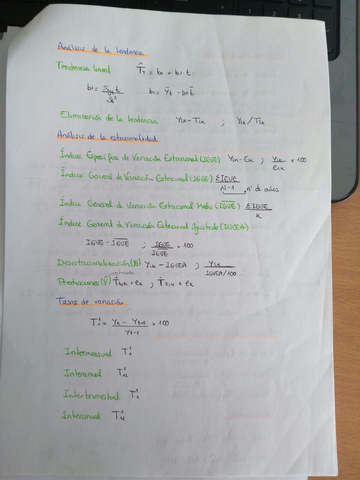 Análisis de la tendencia
Tendencia lineal T̂t = b0 + b1 · t
b1 = Syt / St² b0 = Ȳt - b1 t̄
Eliminación de la tendencia Yik - Tik ; Yik / Tik
Análisis de la estacionalidad
Índice Específico de Variación Estacional (IEVE) Yik - Eik ; Yik / Eik × 100
Índice General de Variación Estacional (IGVE) ΣIEVE / N-1 nº de años
Índice General de Variación Estacional Medio (IGVE) ΣIGVE / k
Índice General de Variación Estacional Ajustado (IGVEA)
IGVE - IGVE ; IGVE / IGVE × 100
Desestacionalización Yik - IGVEA ; Yik / IGVEA/100
Predicciones (Ŷ) T̂ik + ek ; T̂ik × ek
Tasas de variación
Yt - Yt-1 / Yt-1 × 100
Intermensual
Interanual
Intertrimestral
Interanual